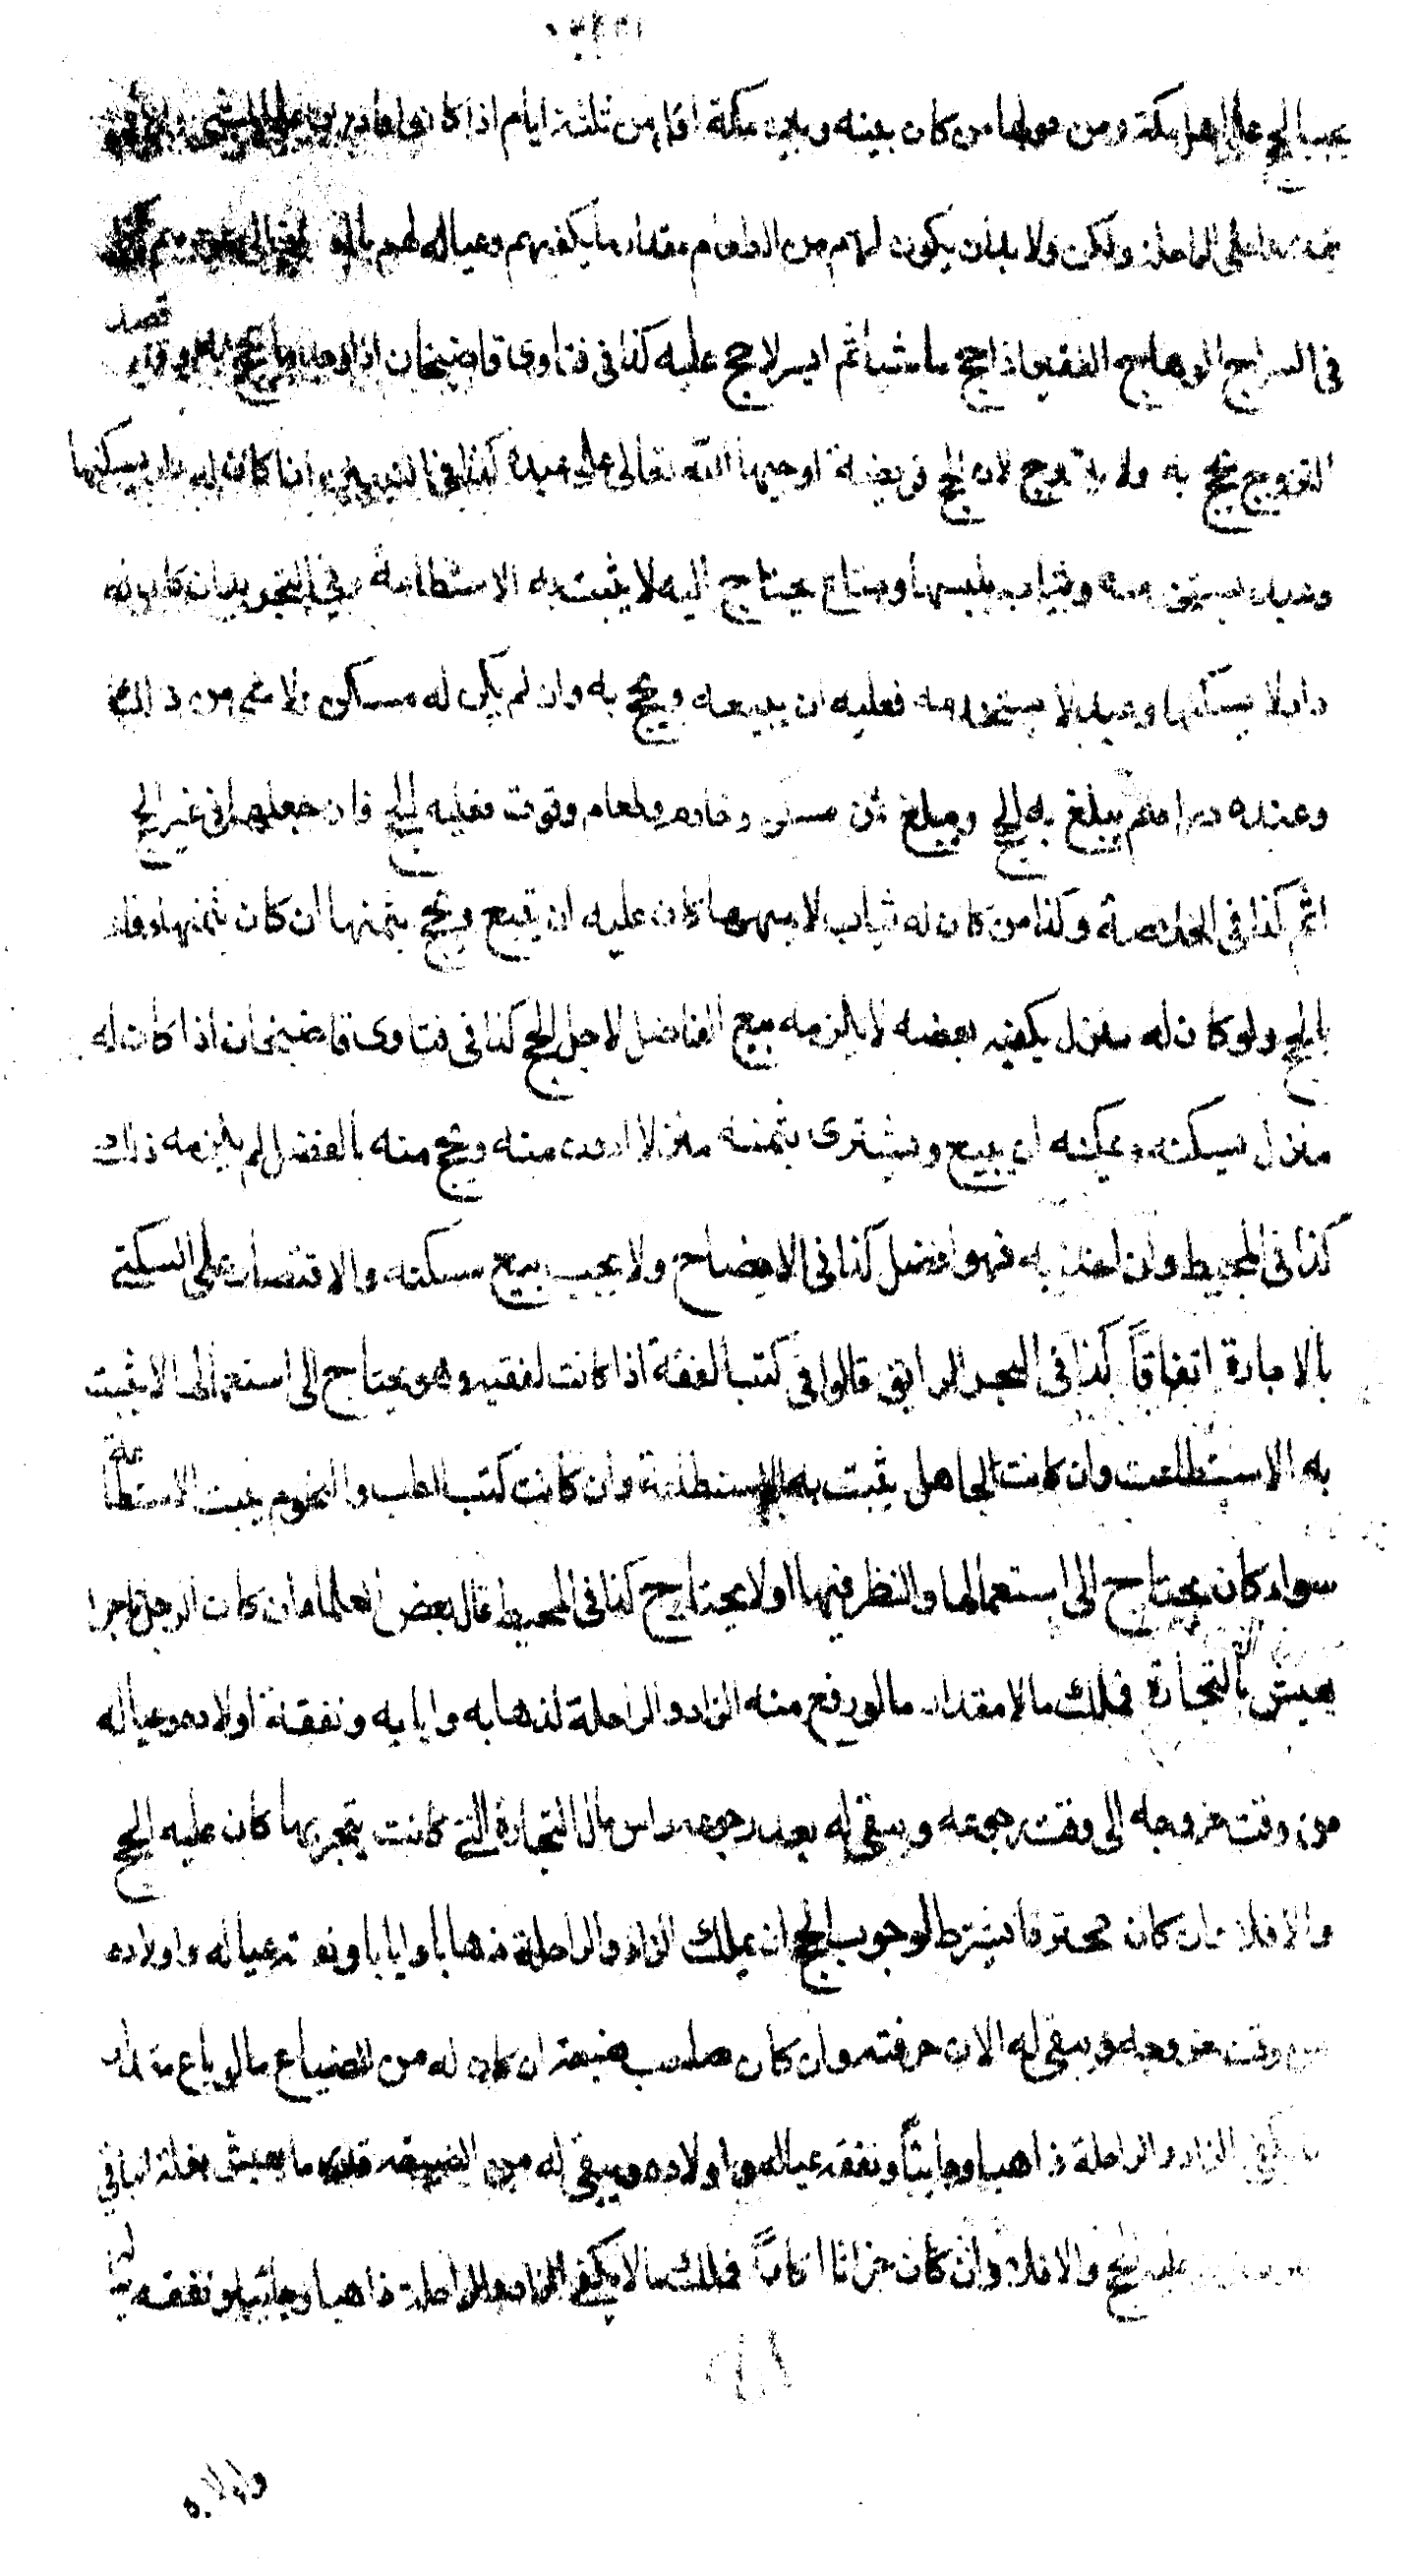 يجب الحج على اهل مكة ومن حولها من كان بينه وبين مكة اقل من ثلثة ايام اذا كانوا قادرين على المشى
على الراحلة ولكن ولا بد ان يكون لهم من الطعام مقدار ما يكفيهم وعيالهم
فى السراج الوهاج الفقير اذا حج ماشيا ثم ايسر لا حج عليه كذا فى فتاوى قاضيخان اذا وجد ما يحج به وقد قصد
التزوج يحج به ولا يتزوج لان الحج فريضة اوجبها الله تعالى على عبده كذا فى التبيين ان كان له دار يسكنها
وعبد يستخدمه وثياب يلبسها ومتاع يحتاج اليه لا يثبت به الاستطاعة وفى التجريد ان كان له
دار لا يسكنها وعبد لا يستخدمه فعليه ان يبيعه ويحج به وان لم يكن له مسكن ولا شئ من ذلك
وعنده دراهم يبلغ به الحج ويبلغ ثمن مسكن وخادم وطعام وقوت فعليه الحج فان جعلها فى غير الحج
اثم كذا فى الخلاصة وكذا من كان له ثياب لا يمتهنها كان عليه ان يبيع ويحج بثمنها ان كان بثمنها وفاء
بالحج ولو كان له منزل يكفيه بعضه لا يلزمه بيع الفاضل لاجل الحج كذا فى فتاوى قاضيخان اذا كان له
منزل يسكنه ويمكنه ان يبيع ويشترى بثمنه منزلا ادون منه ويحج منه بالفضل لم يلزمه ذلك
كذا فى المحيط وان اخذ به فهو افضل كذا فى الايضاح ولا يجب بيع مسكنه والاقتصار على السكنى
بالاجارة اتفاقاً كذا فى البحر الرائق قالوا فى كتب الفقه اذا كانت لفقيه وهو يحتاج الى استعمالها لا يثبت
به الاستطاعت وان كانت لجاهل يثبت به الاستطاعة وان كانت كتب الطب والنجوم يثبت الاستطاعة
سواء كان يحتاج الى استعمالها والنظر فيها او لا يحتاج كذا فى المحيط قال بعض العلماء ان كان الرجل تاجرا
يعيش بالتجارة فملك مالا مقدار ما لو رفع منه الزاد والراحلة لذهابه وايابه ونفقة اولاده وعياله
من وقت خروجه الى وقت رجوعه ويبقى له بعد رجوعه راس مال التجارة التى كانت يتجر بها كان عليه الحج
والا فلا وان كان محترفا يشترط لوجوب الحج ان يملك الزاد والراحلة ذهابا وايابا ونفقة عياله واولاده
من وقت خروجه ويبقى له الات حرفته وان كان صاحب ضيعة ان كان له من الضياع ما لو باع مقدار
ما يكفى الزاد والراحلة ذاهبا وجائيًا ونفقة عياله واولاده ويبقى له من الضيعة قدر ما يعيش بغلة الباقى
عليه الحج والا فلا وان كان حراثا اكاراً فملك مالا يكفى الزاد والراحلة ذاهبا وجائيا ونفقة
واولاده